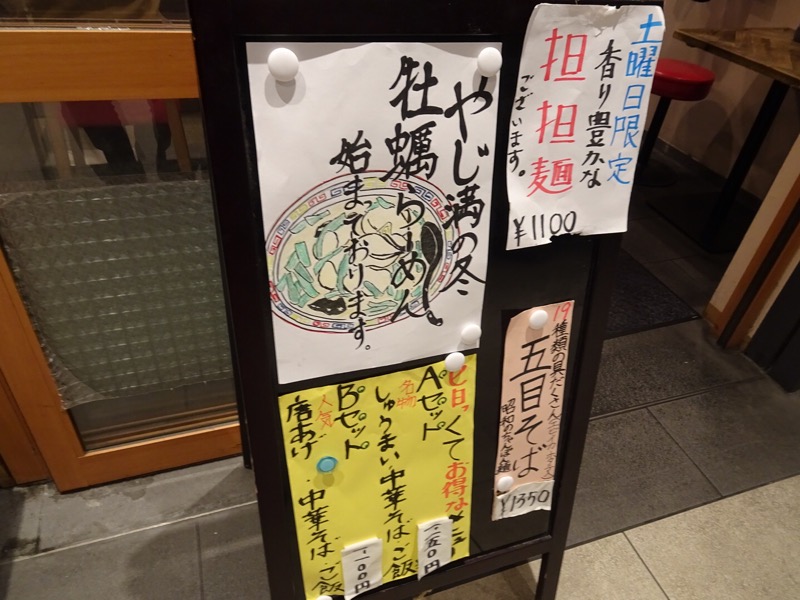 やじ満の冬
牡蠣らーめん
始まっております。
土曜日限定
香り豊かな
担担麺
ございます。
¥1100
19種類の具だくさん
五目そば
昭和の
¥1350
てお得なメニュー
Aセット
名物
しゅうまい 中華そば ご飯
一二五〇円
Bセット
人気
唐あげ 中華そば ご飯
一一〇〇円